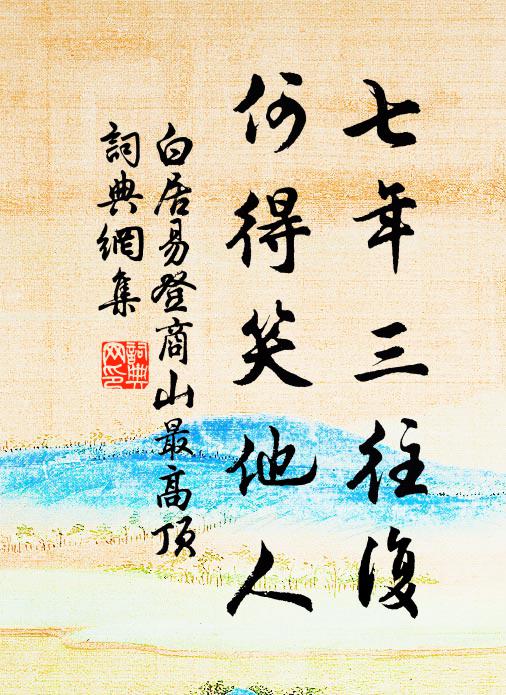 七年三往復
何得笑他人
白居易登商山最高頂
詞典網集
詞典
网印